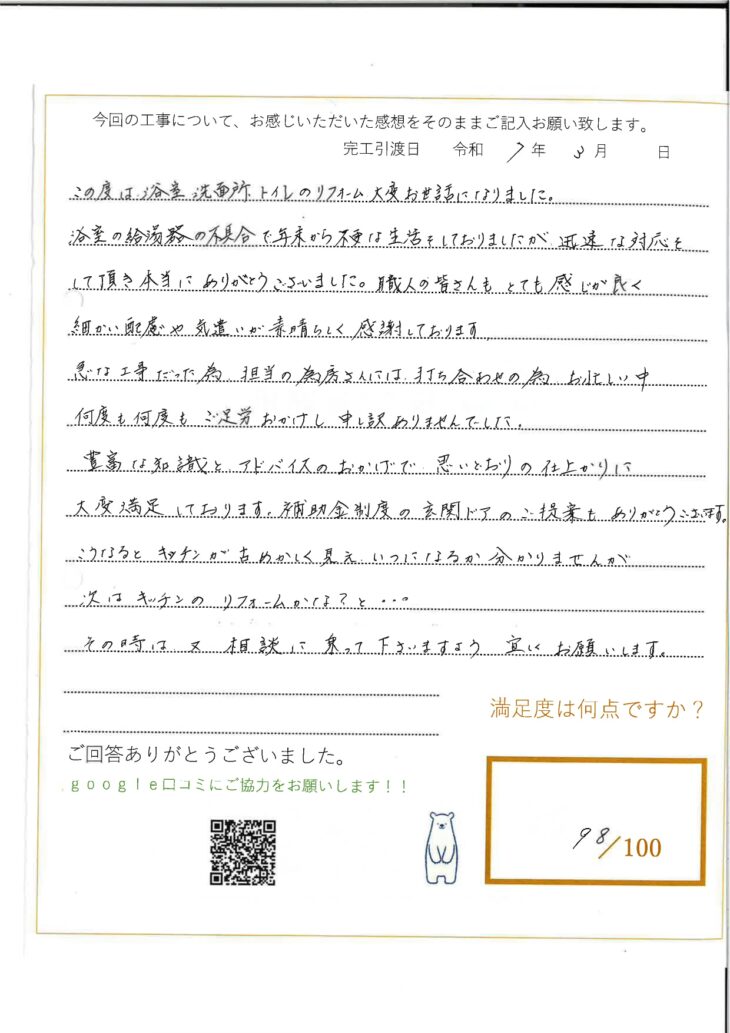 今回の工事について、お感じいただいた感想をそのままご記入お願い致します。
完工引渡日 令和 7 年 3 月 日
この度は浴室 洗面所 トイレのリフォーム 大変お世話になりました。
浴室の給湯器の不具合で年末から不便な生活をしておりましたが 迅速な対応を
して頂き 本当に ありがとうございました。職人の皆さんも とても 感じが良く
細かい配慮や 気遣いが 素晴らしく 感謝しております
急な工事だった為 担当の為房さんには 打ち合わせの為 お忙しい中
何度も何度も ご足労おかけし 申し訳ありませんでした。
豊富な知識と アドバイスのおかげで 思いどおりの仕上がりに
大変満足しております。補助金制度の玄関ドアのご提案も ありがとうございます。
こうなると キッチンが古めかしく見え いつになるか分かりませんが
次はキッチンの リフォームかな?と・・・
その時は 又 相談に 乗って下さいますよう 宜しくお願いします。
満足度は何点ですか？
ご回答ありがとうございました。
google口コミにご協力をお願いします！！
98/100